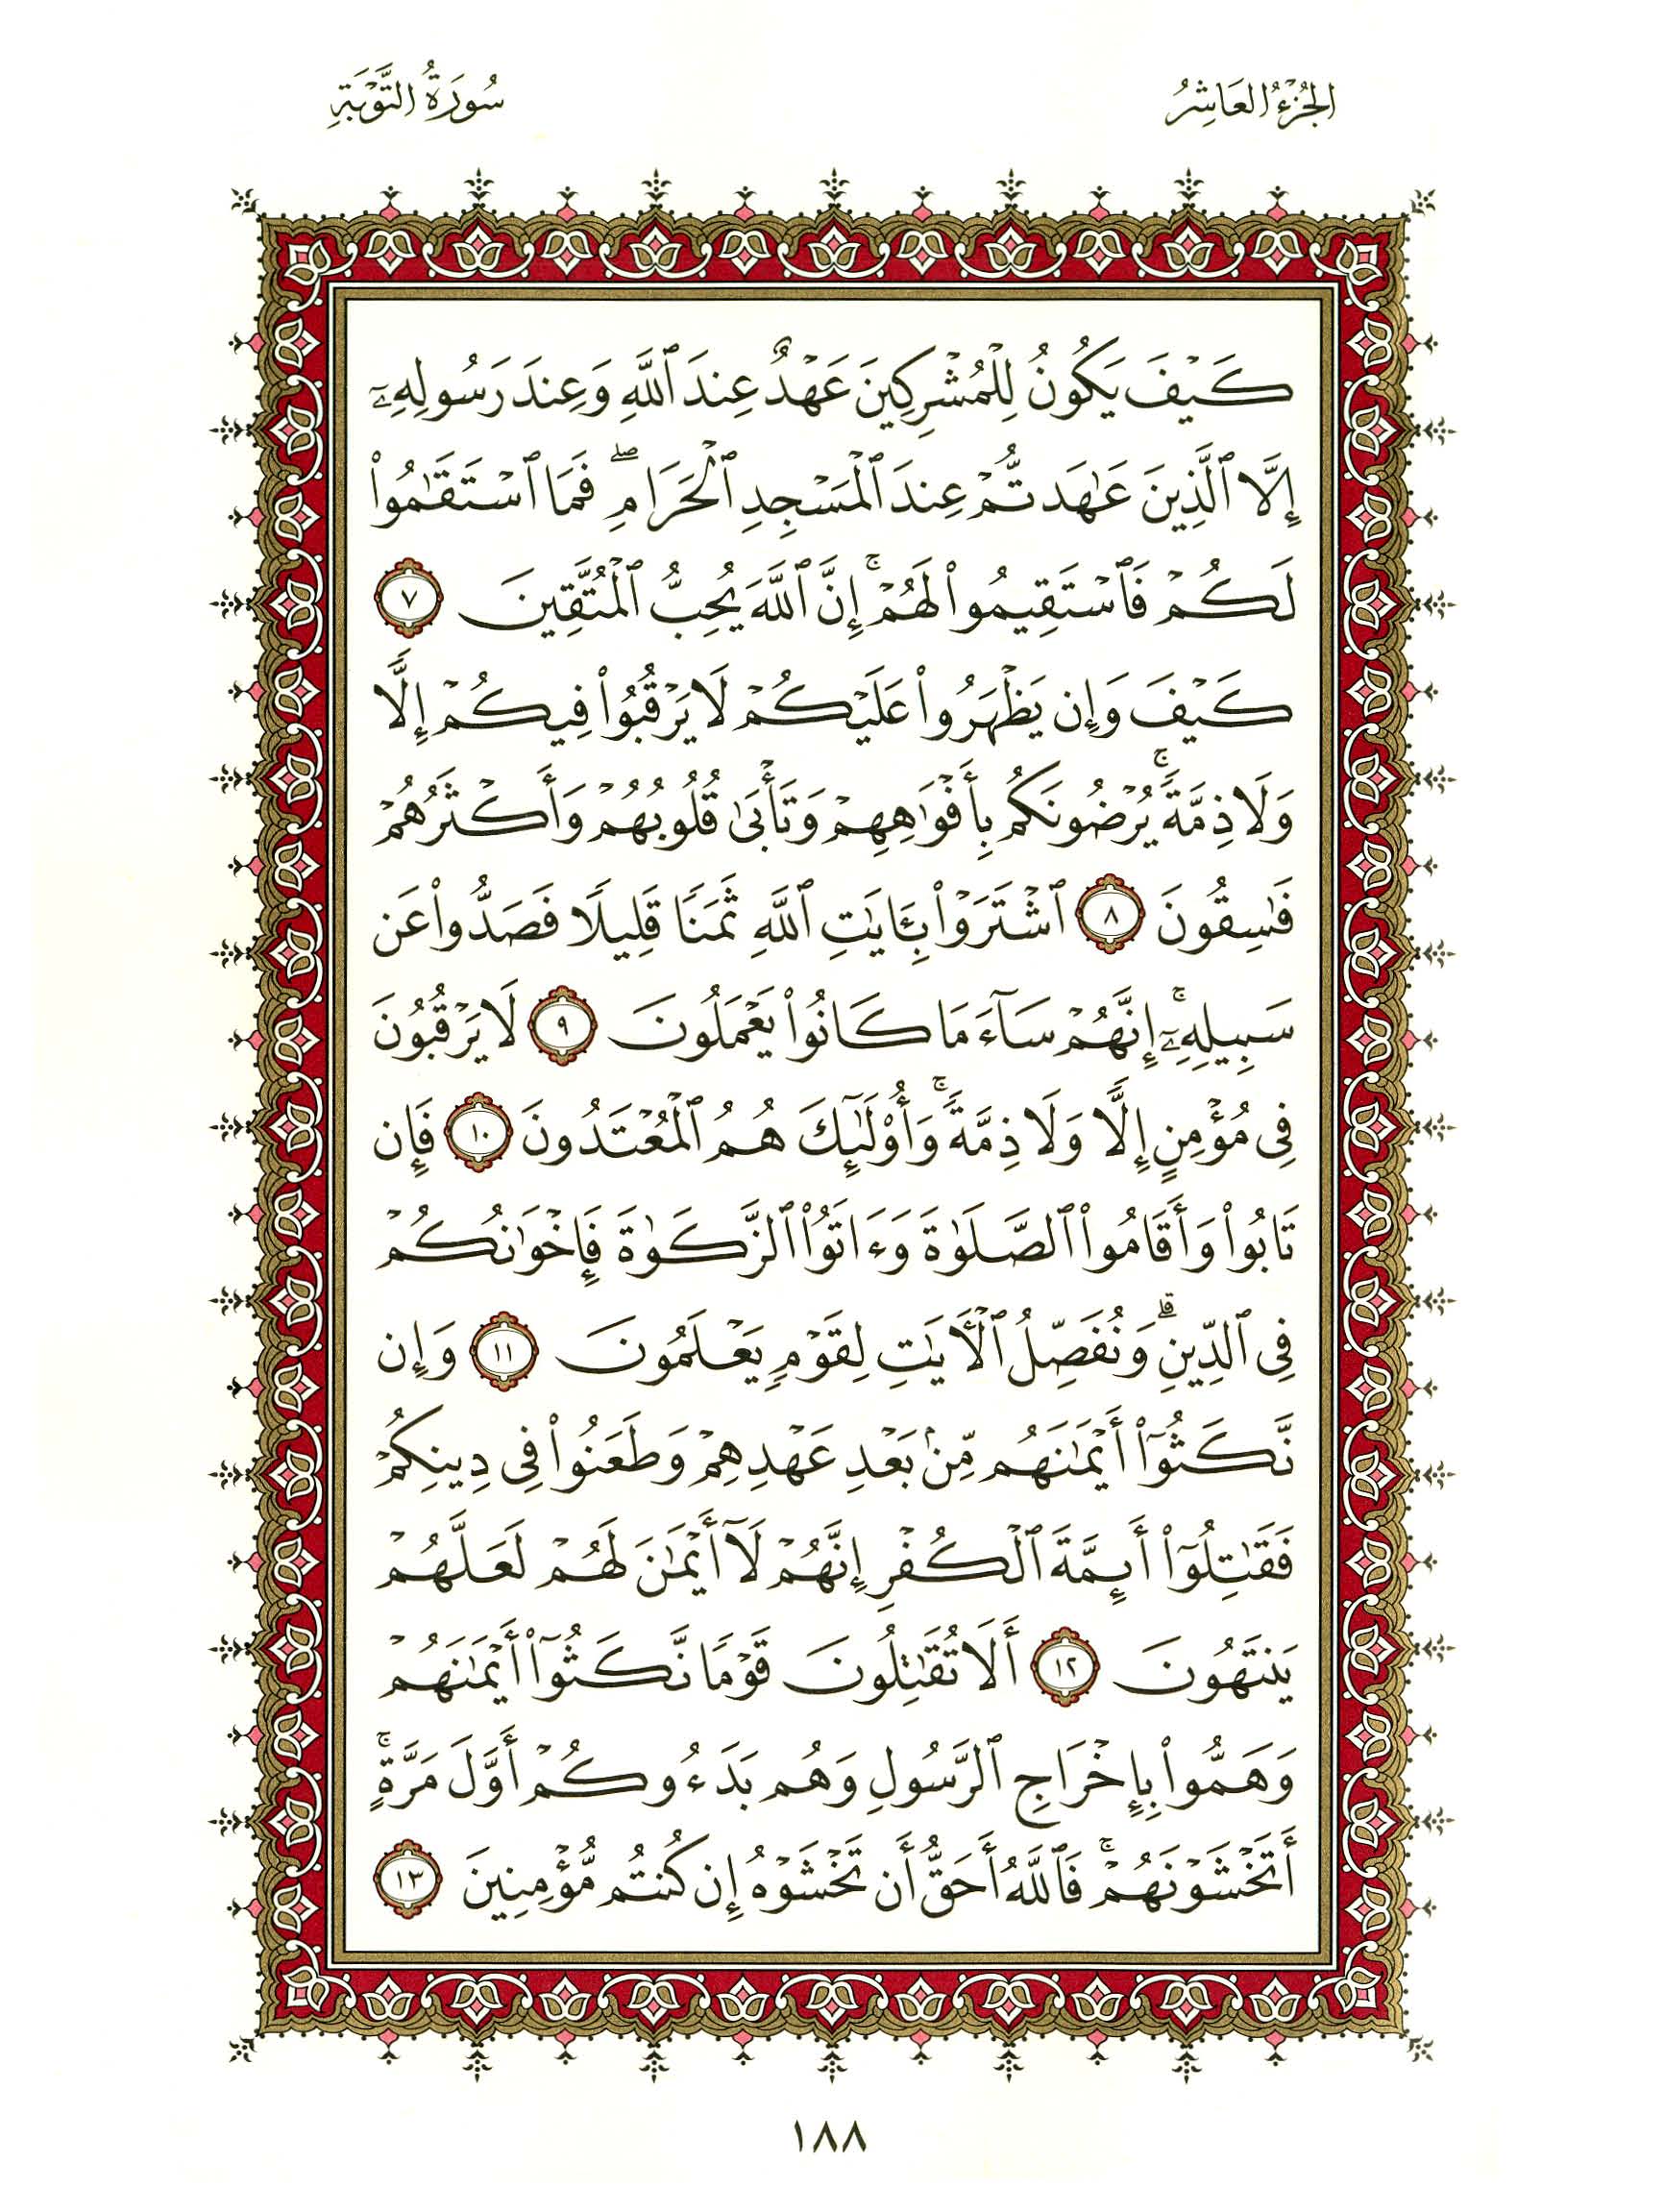 الجُزْءُ العَاشِرُ
سُورَةُ التَّوْبَةِ
كَيْفَ يَكُونُ لِلْمُشْرِكِينَ عَهْدٌ عِندَ ٱللَّهِ وَعِندَ رَسُولِهِۦٓ
إِلَّا ٱلَّذِينَ عَٰهَدتُّمْ عِندَ ٱلْمَسْجِدِ ٱلْحَرَامِ ۖ فَمَا ٱسْتَقَٰمُوا۟
لَكُمْ فَٱسْتَقِيمُوا۟ لَهُمْ ۚ إِنَّ ٱللَّهَ يُحِبُّ ٱلْمُتَّقِينَ ٧
كَيْفَ وَإِن يَظْهَرُوا۟ عَلَيْكُمْ لَا يَرْقُبُوا۟ فِيكُمْ إِلًّا
وَلَا ذِمَّةً ۚ يُرْضُونَكُم بِأَفْوَٰهِهِمْ وَتَأْبَىٰ قُلُوبُهُمْ وَأَكْثَرُهُمْ
فَٰسِقُونَ ٨ ٱشْتَرَوْا۟ بِـَٔايَٰتِ ٱللَّهِ ثَمَنًا قَلِيلًا فَصَدُّوا۟ عَن
سَبِيلِهِۦٓ ۚ إِنَّهُمْ سَآءَ مَا كَانُوا۟ يَعْمَلُونَ ٩ لَا يَرْقُبُونَ
فِى مُؤْمِنٍ إِلًّا وَلَا ذِمَّةً ۚ وَأُو۟لَٰٓئِكَ هُمُ ٱلْمُعْتَدُونَ ١٠ فَإِن
تَابُوا۟ وَأَقَامُوا۟ ٱلصَّلَوٰةَ وَءَاتَوُا۟ ٱلزَّكَوٰةَ فَإِخْوَٰنُكُمْ
فِى ٱلدِّينِ ۗ وَنُفَصِّلُ ٱلْـَٔايَٰتِ لِقَوْمٍ يَعْلَمُونَ ١١ وَإِن
نَّكَثُوٓا۟ أَيْمَٰنَهُم مِّنۢ بَعْدِ عَهْدِهِمْ وَطَعَنُوا۟ فِى دِينِكُمْ
فَقَٰتِلُوٓا۟ أَئِمَّةَ ٱلْكُفْرِ إِنَّهُمْ لَآ أَيْمَٰنَ لَهُمْ لَعَلَّهُمْ
يَنتَهُونَ ١٢ أَلَا تُقَٰتِلُونَ قَوْمًا نَّكَثُوٓا۟ أَيْمَٰنَهُمْ
وَهَمُّوا۟ بِإِخْرَاجِ ٱلرَّسُولِ وَهُم بَدَءُوكُمْ أَوَّلَ مَرَّةٍ ۚ
أَتَخْشَوْنَهُمْ ۚ فَٱللَّهُ أَحَقُّ أَن تَخْشَوْهُ إِن كُنتُم مُّؤْمِنِينَ ١٣
١٨٨